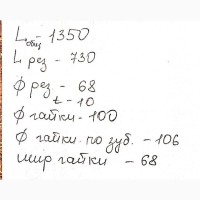 Lобщ - 1350
L рез - 730
ф рез - 68
t - 10
ф гайки - 100
ф гайки по зуб. - 106
шир гайки - 68